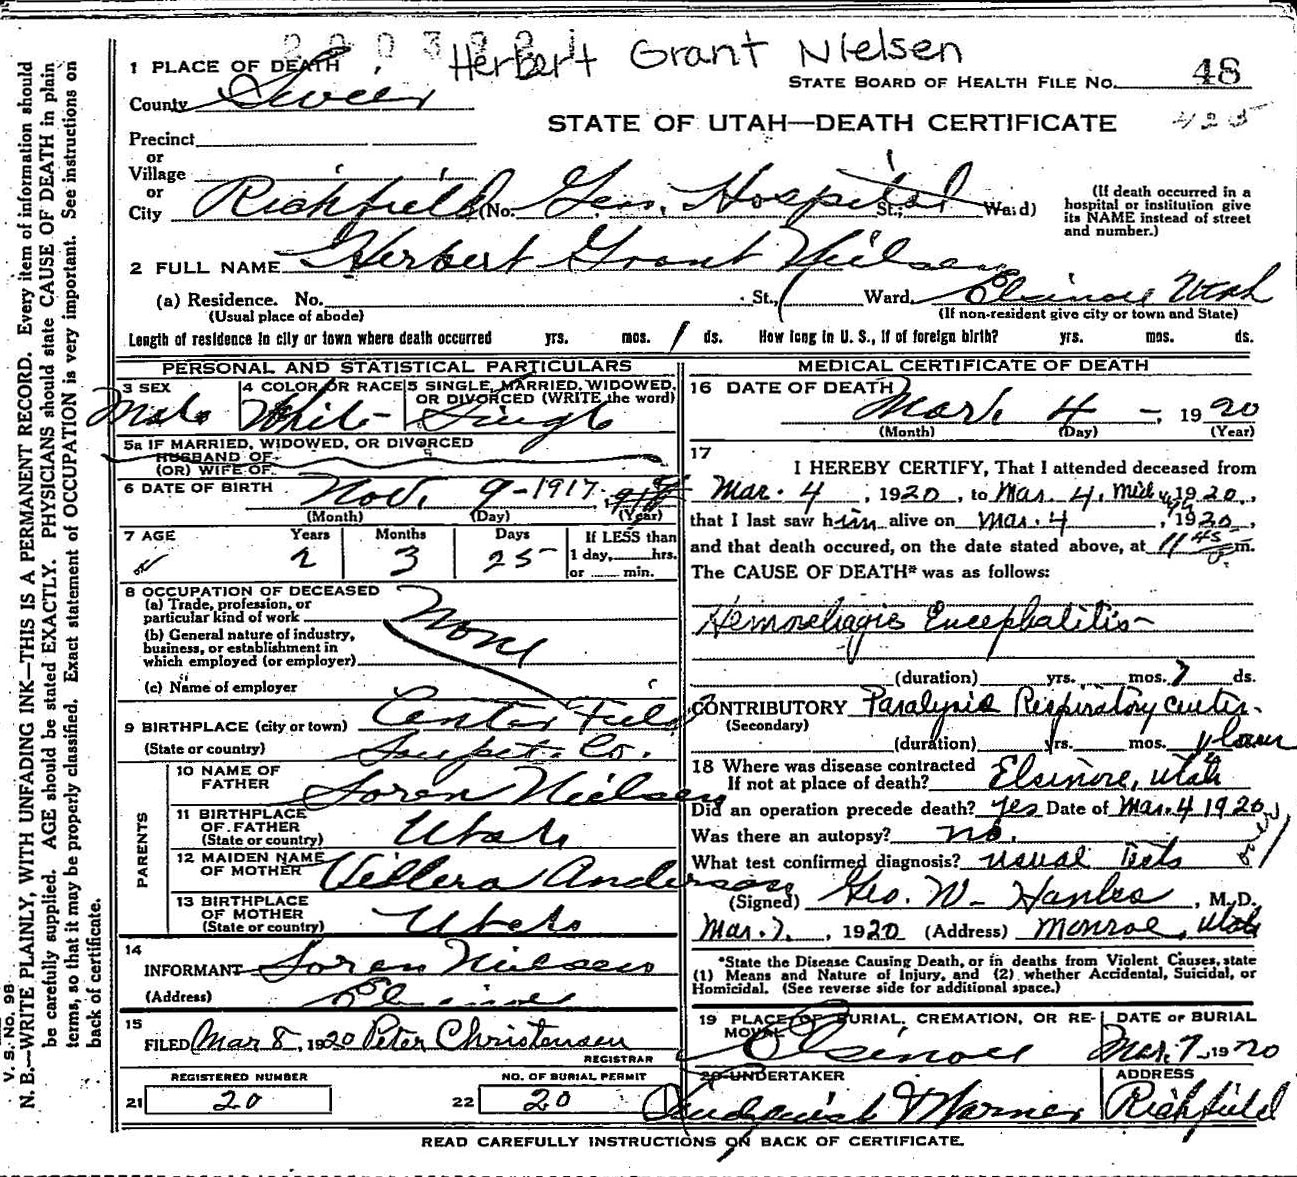 Herbert Grant Nielsen
1 PLACE OF DEATH
STATE BOARD OF HEALTH FILE No. 48
County Sevier
STATE OF UTAH—DEATH CERTIFICATE 425
Precinct
or
Village
or
City Richfield (No. Gen. Hospital St.; Ward)
(If death occurred in a
hospital or institution give
its NAME instead of street
and number.)
2 FULL NAME Herbert Grant Nielsen
(a) Residence. No. St., Ward. Elsinore Utah
(Usual place of abode) (If non-resident give city or town and State)
Length of residence in city or town where death occurred yrs. mos. 1 ds. How long in U. S., if of foreign birth? yrs. mos. ds.
PERSONAL AND STATISTICAL PARTICULARS
3 SEX 4 COLOR OR RACE 5 SINGLE, MARRIED, WIDOWED,
OR DIVORCED (WRITE the word)
Male White Single
5a IF MARRIED, WIDOWED, OR DIVORCED
HUSBAND OF
(OR) WIFE OF
6 DATE OF BIRTH Nov. 9-1917
(Month) (Day) (Year)
7 AGE Years Months Days If LESS than
1 day, hrs.
or min.
2 3 25
8 OCCUPATION OF DECEASED
(a) Trade, profession, or
particular kind of work None
(b) General nature of industry,
business, or establishment in
which employed (or employer)
(c) Name of employer
9 BIRTHPLACE (city or town) Center Field
(State or country) Sanpete Co.
PARENTS
10 NAME OF
FATHER Soren Nielsen
11 BIRTHPLACE
OF FATHER
(State or country) Utah
12 MAIDEN NAME
OF MOTHER Villera Anderson
13 BIRTHPLACE
OF MOTHER
(State or country) Utah
14
INFORMANT Soren Nielsen
(Address) Elsinore
15
FILED Mar 8, 1920 Peter Christensen
REGISTRAR
REGISTERED NUMBER NO. OF BURIAL PERMIT
21 20 22 20
MEDICAL CERTIFICATE OF DEATH
16 DATE OF DEATH
March 4 - 1920
(Month) (Day) (Year)
17
I HEREBY CERTIFY, That I attended deceased from
Mar. 4, 1920, to Mar. 4, 1920,
that I last saw him alive on Mar. 4, 1920,
and that death occured, on the date stated above, at 11 45 P.m.
The CAUSE OF DEATH* was as follows:
Hemorrhagic Encephalitis
(duration) yrs. mos. 7 ds.
CONTRIBUTORY Paralysis Respiratory center
(Secondary)
(duration) yrs. mos. 1 hour
18 Where was disease contracted
If not at place of death? Elsinore, Utah
Did an operation precede death? yes Date of Mar. 4 1920
Was there an autopsy? no.
What test confirmed diagnosis? usual Tests
(Signed) Geo. W. , M.D.
Mar. 7, 1920 (Address) Monroe, Utah
*State the Disease Causing Death, or in deaths from Violent Causes, state
(1) Means and Nature of Injury, and (2) whether Accidental, Suicidal, or
Homicidal. (See reverse side for additional space.)
19 PLACE OF BURIAL, CREMATION, OR RE-
MOVAL DATE OF BURIAL
Elsinore Mar. 7 1920
20 UNDERTAKER ADDRESS
& Warner Richfield
READ CAREFULLY INSTRUCTIONS ON BACK OF CERTIFICATE.
V. S. No. 98
N. B.—WRITE PLAINLY, WITH UNFADING INK—THIS IS A PERMANENT RECORD. Every item of information should
be carefully supplied. AGE should be stated EXACTLY. PHYSICIANS should state CAUSE OF DEATH in plain
terms, so that it may be properly classified. Exact statement of OCCUPATION is very important. See instructions on
back of certificate.